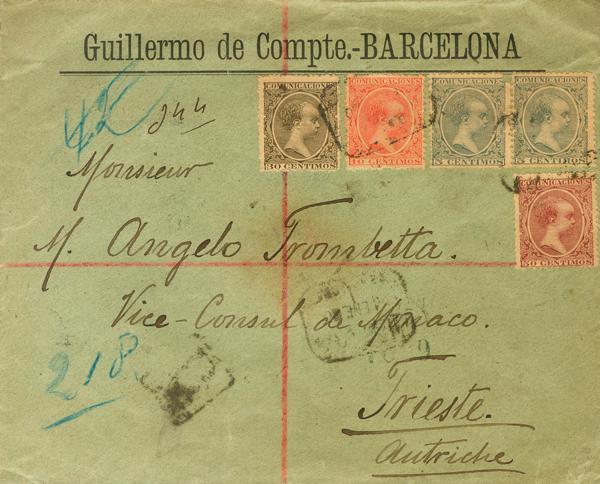 Guillermo de Compte.-BARCELONA
42
244
COMUNICACIONES
30 CENTIMOS
COMUNICACIONES
10 CENTIMOS
COMUNICACIONES
5 CENTIMOS
COMUNICACIONES
5 CENTIMOS
COMUNICACIONES
30 CENTIMOS
Monsieur
M. Angelo Trombetta.
Vice-Consul de Monaco.
218
Trieste.
Autriche